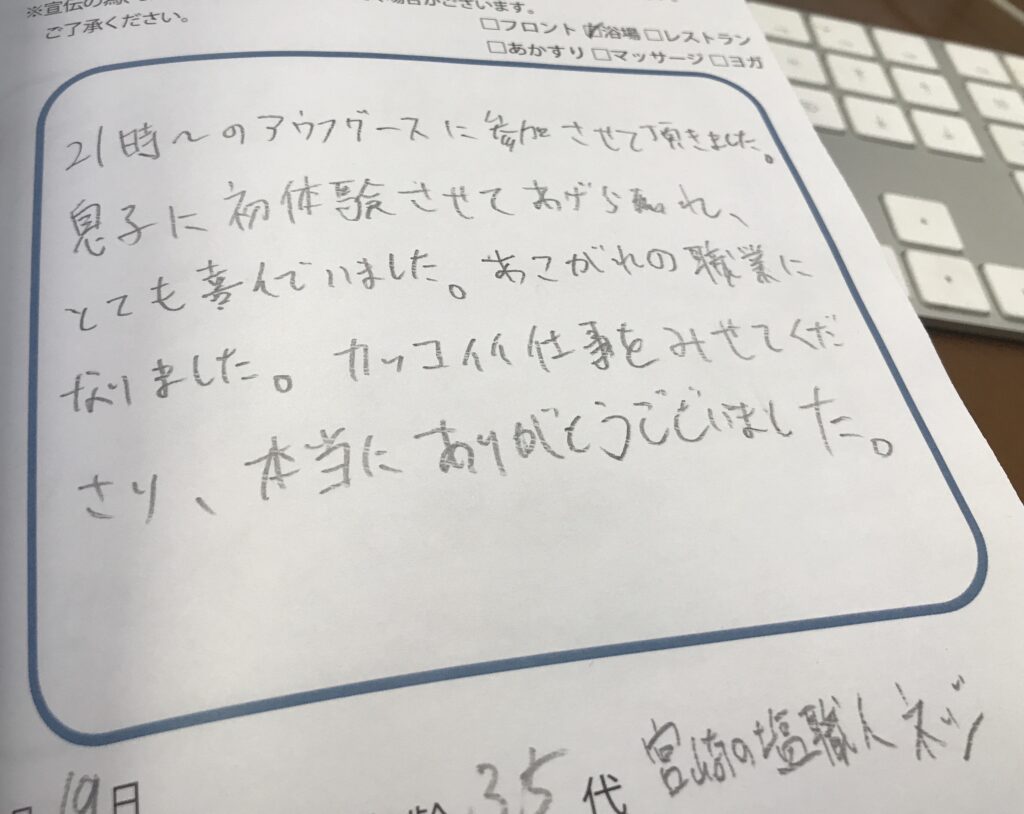 ご了承ください。
□フロント ☑浴場 □レストラン
□あかすり □マッサージ □ヨガ
21時〜のアウフグースに参加させて頂きました。
息子に初体験させてあげられ、
とても喜んでいました。あこがれの職業に
なりました。カッコイイ仕事をみせてくだ
さり、本当にありがとうございました。
19日
35代 宮崎の塩職人ネッツ